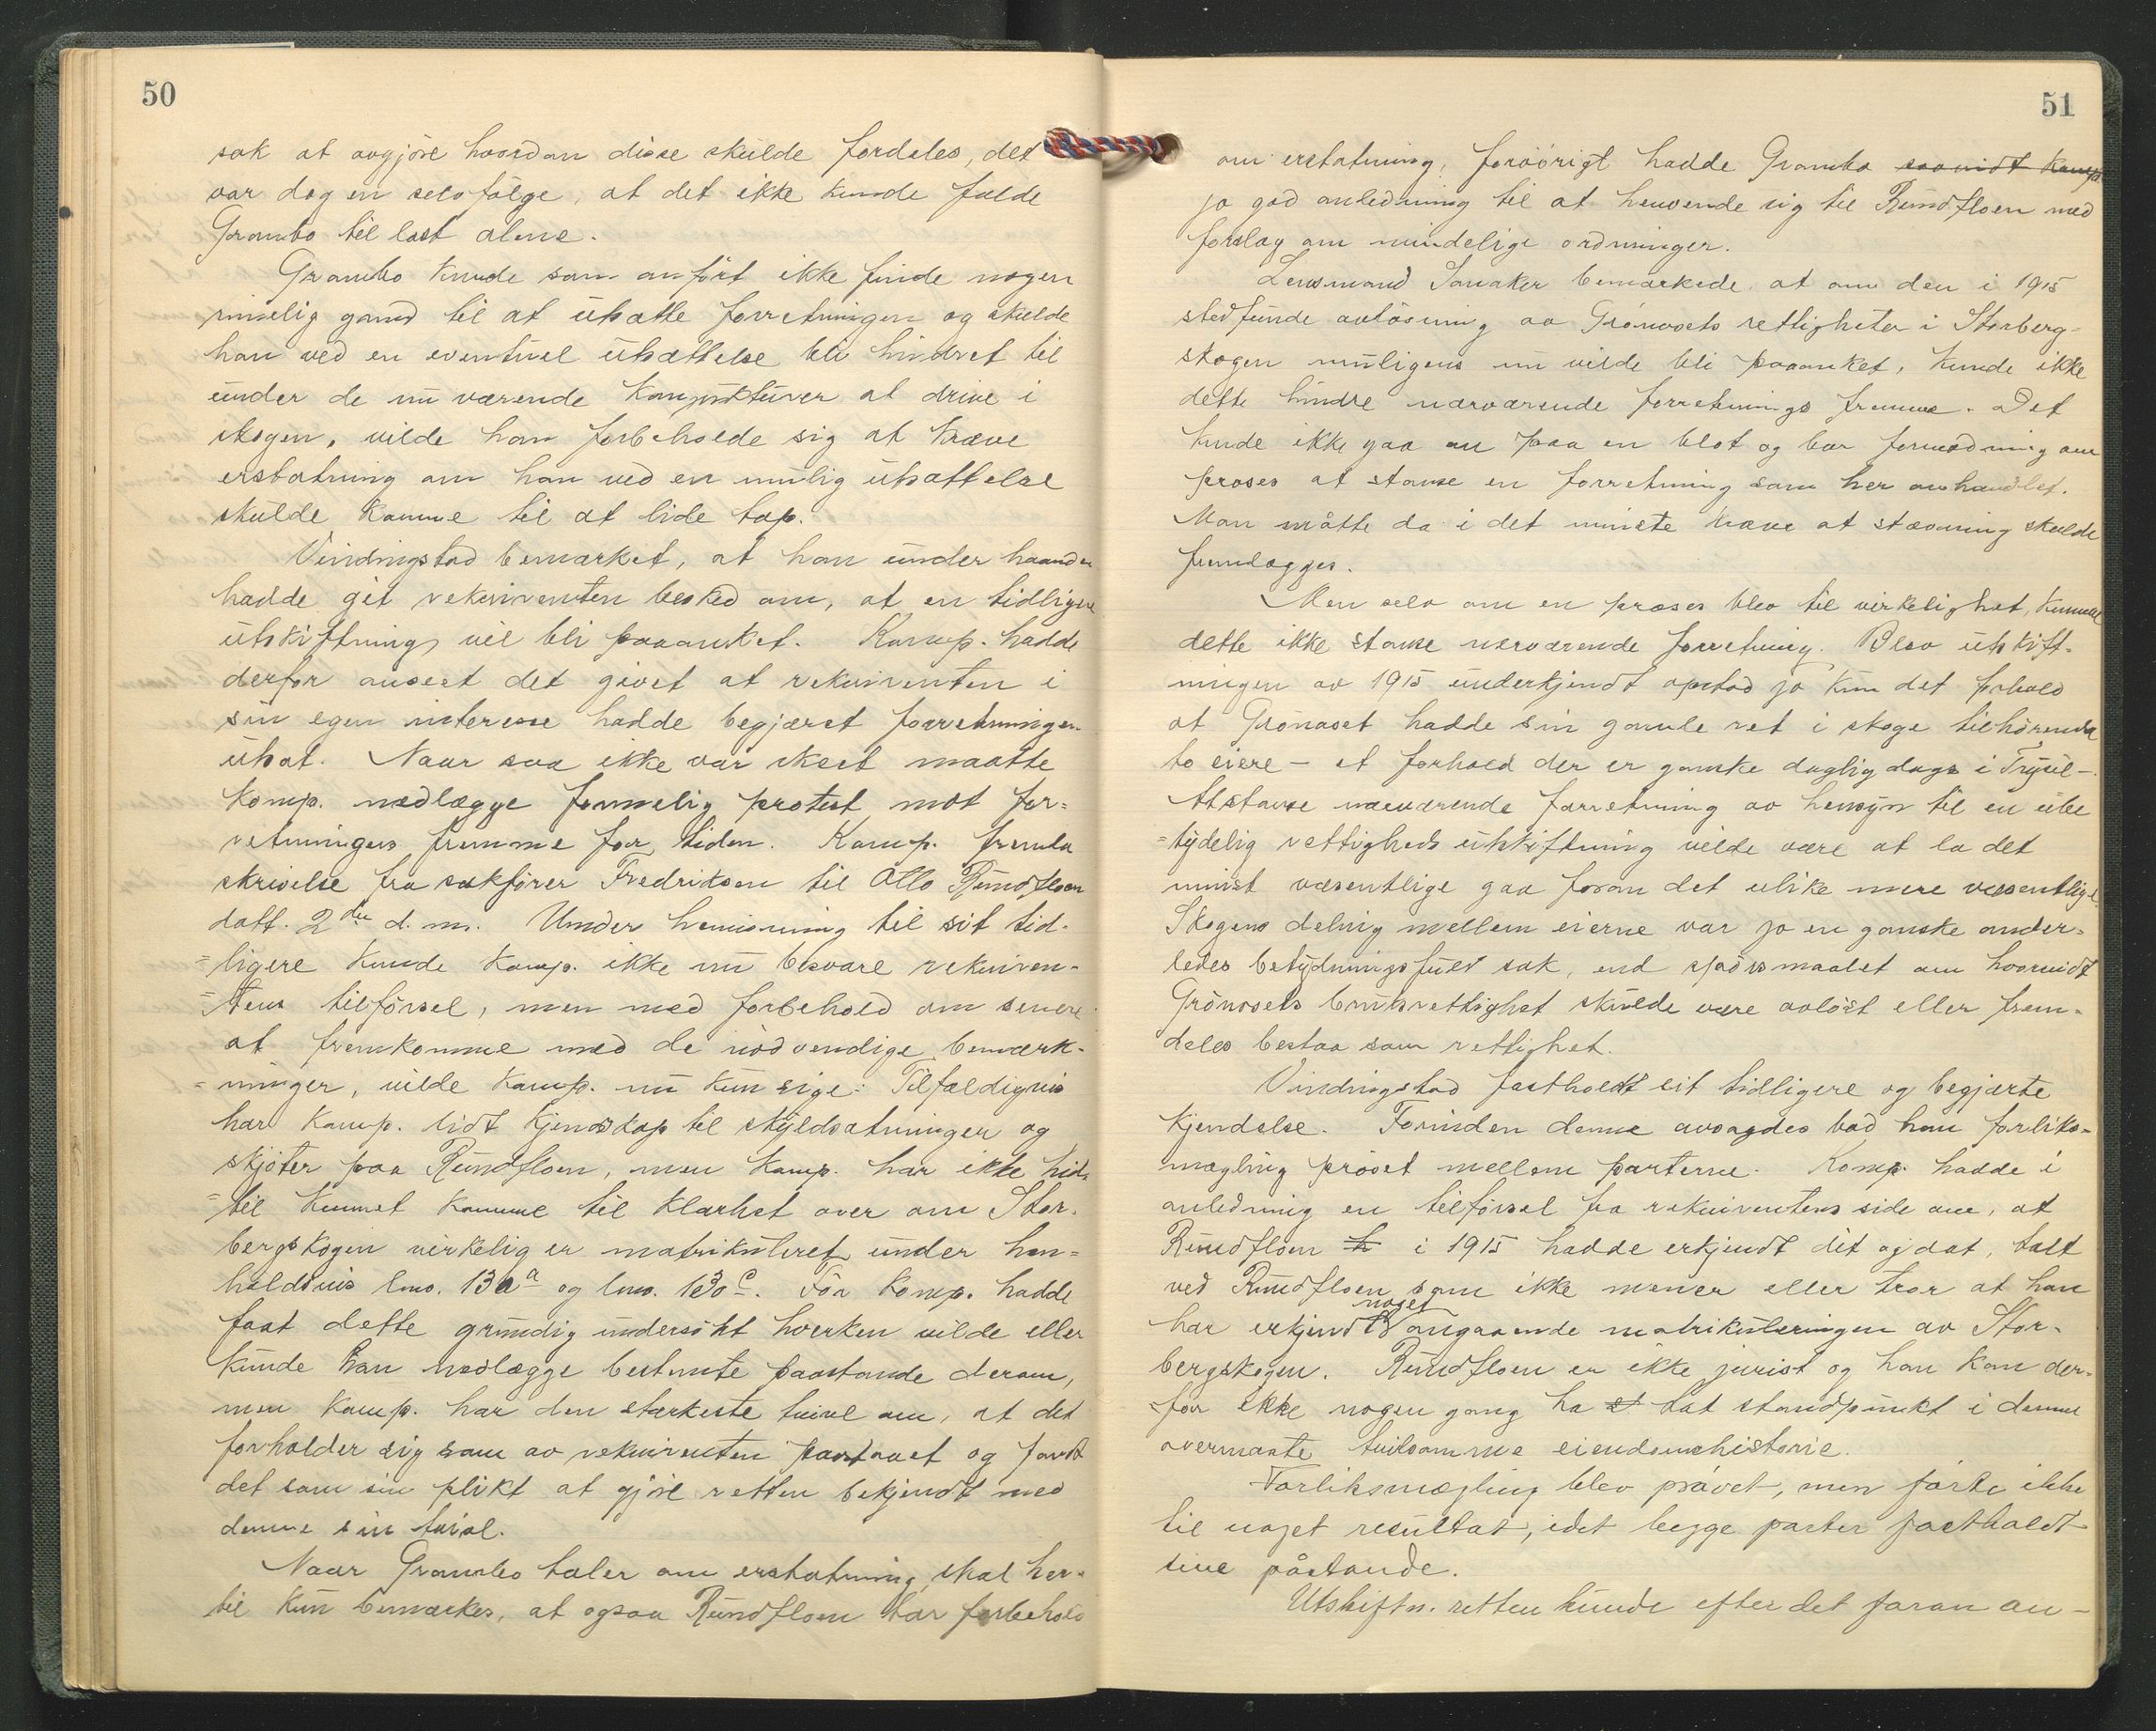 50
sak at avgjøre hvordan disse skulde fordeles, det
var dog en selvfølge, at det ikke kunde falde
Grambo til last alene.
Grambo kunde som anført ikke finde nogen
rimelig grund til at utsætte forretningen og skulde
han ved en eventuel utsættelse bli hindret til
under de nu værende konjunkturer at drive i
skogen, vilde han forbeholde sig at kræve
erstatning om han ved en mulig utsættelse
skulde komme til at lide tap.
Vindingstad bemærket, at han under haanden
hadde git rekvirenten besked om, at en tidligere
utskiftning vil bli paaanket. Komp. hadde
derfor anseet det givet at rekvirenten i
sin egen interesse hadde begjæret forretningen
utsat. Naar saa ikke var skeet maatte
Komp. nedlægge formelig protest mot for=
retningens fremme for tiden. Komp. fremla
skrivelse fra sakfører Fredriksen til Otto Rundfloen
datt. 2den d. m. Under henvisning til sit tid-
=ligere kunde Komp. ikke nu besvare rekviren-
=tens tilførsel, men med forbehold om senere
at fremkomme med de nødvendige bemærk-
=ninger, vilde Komp. nu kun sige: Tilfældigvis
har Komp. lidt kjendskap til skyldsætningen og
skjøter paa Rundfloen, men Komp. har ikke hid=
=til kunnet komme til klarhet over om Stor-
bergskogen virkelig er matrikuleret under hen=
holdsvis lnr. 130a og lnr. 130c. Før Komp. hadde
faat dette grundig undersøkt hverken vilde eller
kunde han nedlægge bestemte paastande derom,
men Komp. har den sterkeste tvivl om, at det
forholder sig som av rekvirenten paastaaet og fandt
det som sin plikt at gjøre retten bekjendt med
denne sin tvivl.
Naar Grambo taler om erstatning, skal her-
til kun bemerkes, at ogsaa Rundfloen tar forbehold
51
om erstatning, forøvrigt hadde Grambo saavidt Komp.
jo god anledning til at henvende sig til Rundfloen med
forslag om mindelige ordninger.
Lensmand Sanaker bemærkede at om den i 1915
stedfunde avløsning av Grønosets rettigheter i Storberg-
skogen muligens nu vilde bli paaanket, kunde ikke
dette hindre nærværende forretnings fremme. Det
kunde ikke gaa an paa en blot og bar formodning om
proses at stanse en forretning som her omhandlet.
Man måtte da i det minste kræve at stævning skulde
fremlægges.
Men selv om en proses blev til virkelighet, kunde
dette ikke stanse nærværende forretning. Blev utskift-
ningen av 1915 underkjendt opstod jo kun det forhold
at Grønoset hadde sin gamle ret i skoge tilhørende
to eiere – et forhold der er ganske daglig dags i Trysil –.
At stanse nærværende forretning av hensyn til en ube
=tydelig rettigheds utskiftning vilde være at la det
minst væsentlige gaa foran det ulike mere væsentlige.
Skogens deling mellem eierne var jo en ganske ander=
ledes betydningsfuld sak, end spørsmaalet om hvorvidt
Grønosets bruksrettighet skulde være avløst eller frem-
deles bestaa som rettighet.
Vindingstad fastholdt sit tidligere og begjærte
kjendelse. Forinden denne avsagdes bad han forliks=
mægling prøvet mellem parterne. Komp. hadde i
anledning en tilførsel fra rekvirentens side om, at
Rundfloen h i 1915 hadde erkjendt dit og dat, talt
ved Rundfloen som ikke mener eller tror at han
har erkjendt noget angaaende matrikuleringen av Stor-
bergskogen. Rundfloen er ikke jurist og han kan der-
for ikke nogen gang ha et tat standpunkt i denne
overmaate tvilsomme eiendomshistorie.
Forliksmægling blev prøvet, men førte ikke
til noget resultat, idet begge parter fastholdt
sine påstande.
Utskiftn. retten kunde efter det foran an-